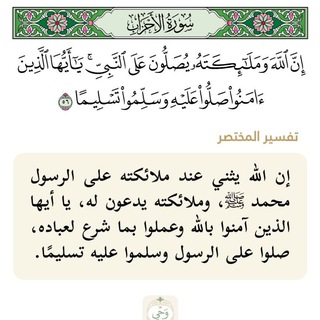 سُورَةُ الأَحْزَابِ
إِنَّ ٱللَّهَ وَمَلَٰٓئِكَتَهُۥ يُصَلُّونَ عَلَى ٱلنَّبِيِّ ۚ يَٰٓأَيُّهَا ٱلَّذِينَ
ءَامَنُوا۟ صَلُّوا۟ عَلَيْهِ وَسَلِّمُوا۟ تَسْلِيمًا ٥٦
تفسير المختصر
إن الله يثني عند ملائكته على الرسول
محمد ﷺ، وملائكته يدعون له، يا أيها
الذين آمنوا بالله وعملوا بما شرع لعباده،
صلوا على الرسول وسلموا عليه تسليمًا.
وَحْي